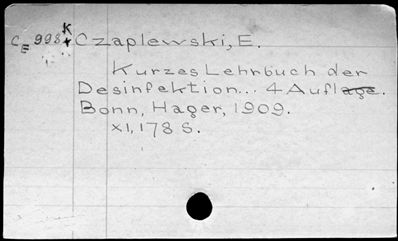 CE 998 K Czaplewski, E.
Kurzes Lehrbuch der
Desinfektion... 4 Auflage.
Bonn, Hager, 1909.
XI, 178 S.